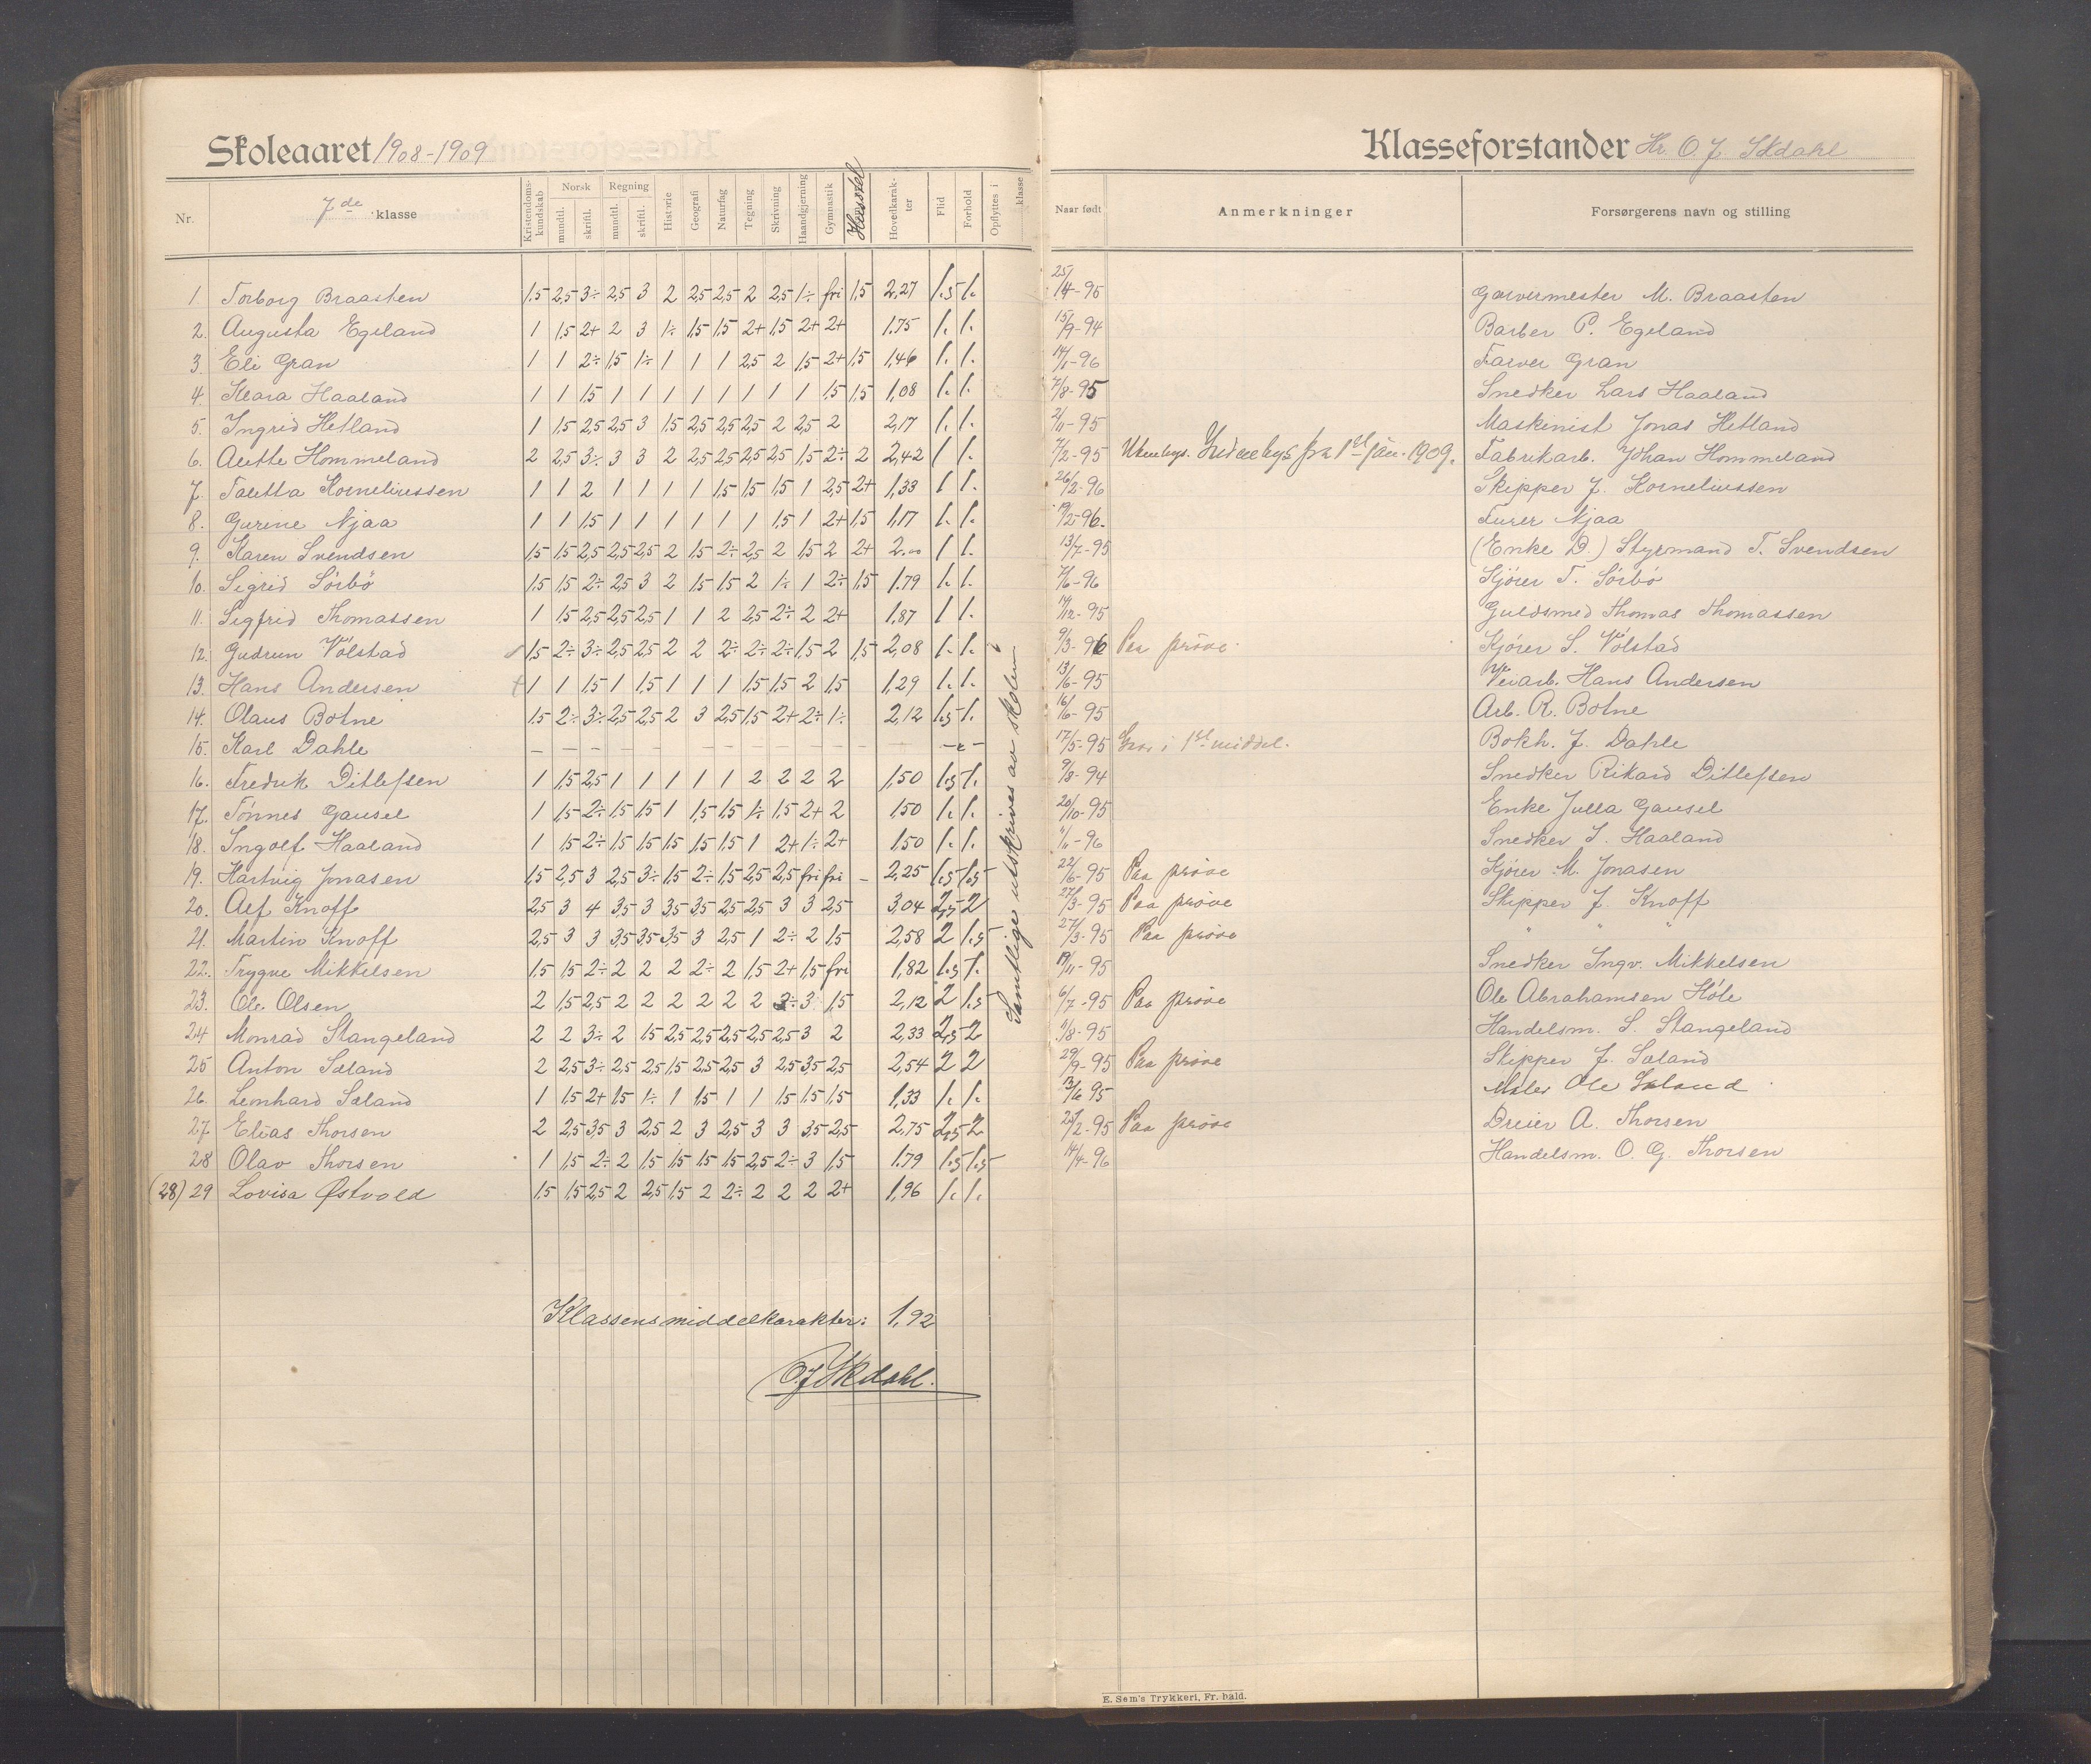 Skoleaaret 1908-1909
Nr. 7de klasse Kristendomskundskab Norsk mundtl. skriftl. Regning mundtl. skriftl. Historie Geografi Naturfag Tegning Skrivning Haandgjerning Gymnastik Hovedkarakter Flid Forhold Opflyttes i klasse
1. Torborg Braasten 1,5 2,5 3÷ 2,5 3 2 2,5 2,5 2 2,5 1÷ fri 1,5 2,27 1.5 1.
2. Augusta Egeland 1 1,5 2+ 2 3 1÷ 1,5 1,5 2+ 1,5 2+ 2+ 1,75 1. 1.
3. Eli Gran 1 1 2÷ 1,5 1÷ 1 1 1 2,5 2 1,5 2+ 1,5 1,46 1. 1.
4. Klara Haaland 1 1 1,5 1 1 1 1 1 1 1 1 1,5 1,5 1,08 1. 1.
5. Ingrid Hetland 1 1,5 2,5 2,5 3 1,5 2,5 2,5 2,5 2 2,5 2 2,17 1. 1.
6. Aette Hommeland 2 2,5 3÷ 3 3 2 2,5 2,5 2,5 2,5 1,5 2÷ 2 2,42 1 1.
7. Taletta Korneliussen 1 1 2 1 1 1 1 1,5 1,5 1,5 1 2,5 2+ 1,33 1 1.
8. Gurine Njaa 1 1 1,5 1 1 1 1 1 1 1,5 1 2+ 1,5 1,17 1. 1.
9. Karen Svendsen 1,5 1,5 2,5 2,5 2,5 2 1,5 2÷ 2,5 2 1,5 2 2+ 2.00 1 1.
10. Sigrid Sörbö 1,5 1,5 2÷ 2,5 3 2 1,5 1,5 2 1÷ 1 2÷ 1,5 1.79 1. 1.
11. Sigfrid Thomassen 1 1,5 2,5 2,5 2,5 1 1 2 2,5 2÷ 2 2+ 1,87 1 1.
12. Gudrun Völstad 1,5 2÷ 3÷ 2,5 2,5 2 2 2÷ 2÷ 2÷ 1,5 2 1,5 2,08 1. 1.
13. Hans Andersen 1 1 1,5 1 1,5 1 1 1 1,5 1,5 2 1,5 1,29 1. 1.
14. Olaus Botne 1,5 2÷ 3÷ 2,5 2,5 2 3 2,5 1,5 2+ 2÷ 1÷ 2,12 1.5 1.
15. Karl Dahle – – – – – – – – – – – – – –
16. Fredrik Ditlefsen 1 1,5 2,5 1 1 1 1 1 2 2 2 2 1,50 1.5 1.
17. Tönnes Gausel 1 1,5 2÷ 1,5 1,5 1 1,5 1,5 1÷ 1,5 2+ 2 1,50 1. 1.
18. Ingolf Haaland 1 1,5 2÷ 1,5 1,5 1,5 1,5 1,5 1 2+ 1÷ 2+ 1,50 1. 1.
19. Hartvig Jonasen 1,5 2,5 3 2,5 3÷ 1,5 2÷ 1,5 2,5 2,5 fri fri – 2,25 1.5 1.5
20. Alf Knoff 2,5 3 4 3,5 3 3,5 3,5 2,5 2,5 3 3 2,5 3,04 2,5 2
21. Martin Knoff 2,5 3 3 3,5 3,5 3,5 3 2,5 1 2÷ 2 1,5 2,58 2 1.5
22. Trygve Mikkelsen 1,5 1,5 2÷ 2 2 2 2÷ 2 1,5 2+ 1,5 fri 1,82 1.5 1.
23. Ole Olsen 2 1,5 2,5 2 2 2 2 2 2 3÷ 3 1,5 2,12 2 1.5
24 Monrad Stangeland 2 2 3÷ 2 1,5 2,5 2,5 2,5 2,5 2,5 3 2 2,33 2,5 2
25 Anton Sæland 2 2,5 3÷ 2,5 2,5 1,5 2,5 2,5 3 2,5 3,5 2,5 2,54 2 2
26. Leonhard Sæland 1 1,5 2+ 1,5 1÷ 1 1,5 1 1 1,5 1,5 1,5 1,33 1. 1.
27 Elias Thorsen 2 2,5 3,5 3 2,5 2 3 2,5 3 3 3,5 2,5 2,75 2,5 2
28 Olav Thorsen 1 1,5 2÷ 2 1,5 1,5 1,5 1,5 2,5 2÷ 3 1,5 1.79 1.5 1.5
(28) 29 Lovisa Østvold 1,5 1,5 2,5 2 2,5 1,5 2 2÷ 2 2 2 2+ 1,96 1. 1.
Samtlige utskrives av skolen
Klassens middelkarakter: 1,92
O.J. Skdahl.
Klasseforstander Hr. O. J. Skdahl
Naar født Anmerkninger Forsørgerens navn og stilling
25/4-95 Garvermester M. Braasten
15/9-94 Barber P. Egeland
14/1-96 Farver Gran
7/8-95 Snedker Lars Haaland
2/11-95 Maskinist Jonas Hetland
7/2-95 Utenbys. Indenbys fra 1st jan. 1909. Fabrikarb. Johan Hommeland
26/2-96 Skipper J. Korneliussen
19/2-96. Furer Njaa
13/7-95 (Enke D.) Styrmand T. Svendsen
7/6-96 Kjörer T. Sörbö
14/12-95 Guldsmed Thomas Thomassen
9/3-96 Paa pröve. Kjörer S. Völstad
13/6-95 Veiarb. Hans Andersen
16/6-95 Arb. R. Botne
17/5-95 i 1st middel. Bokh. J. Dahle
9/8-94 Snedker Rikard Ditlefsen
20/10-95 Enke Julla Gausel
1/1-96 Snedker I. Haaland
22/6-95 Paa pröve Kjörer M. Jonasen
27/3-95 Paa pröve Skipper J. Knoff
27/3-95 Paa pröve " " "
19/11-95 Snedker Ingv. Mikkelsen
6/7-95 Paa pröve Ole Abrahamsen Höle
1/8-95 Handelsm. S. Stangeland
29/9-95 Paa pröve Skipper J. Sæland
13/6 95 Maler Ole Sæland
21/2-95 Paa pröve Dreier A. Thorsen
14/4-96 Handelsm. O. G. Thorsen
E. Sem's Trykkeri, Fr. hald.